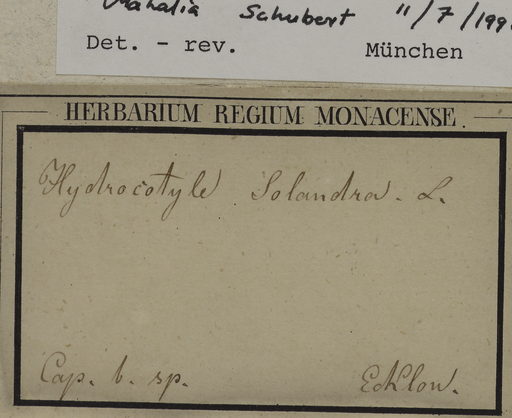 Mahalia Schubert 11/7/199
Det. - rev. München
HERBARIUM REGIUM MONACENSE.
Hydrocotyle Solandra. L.
Cap. b. sp. Ecklon.